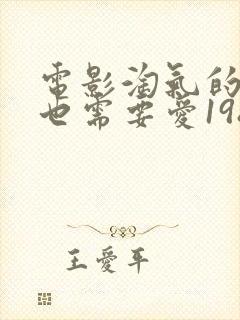 電影淘氣的
也需要愛19
王愛平